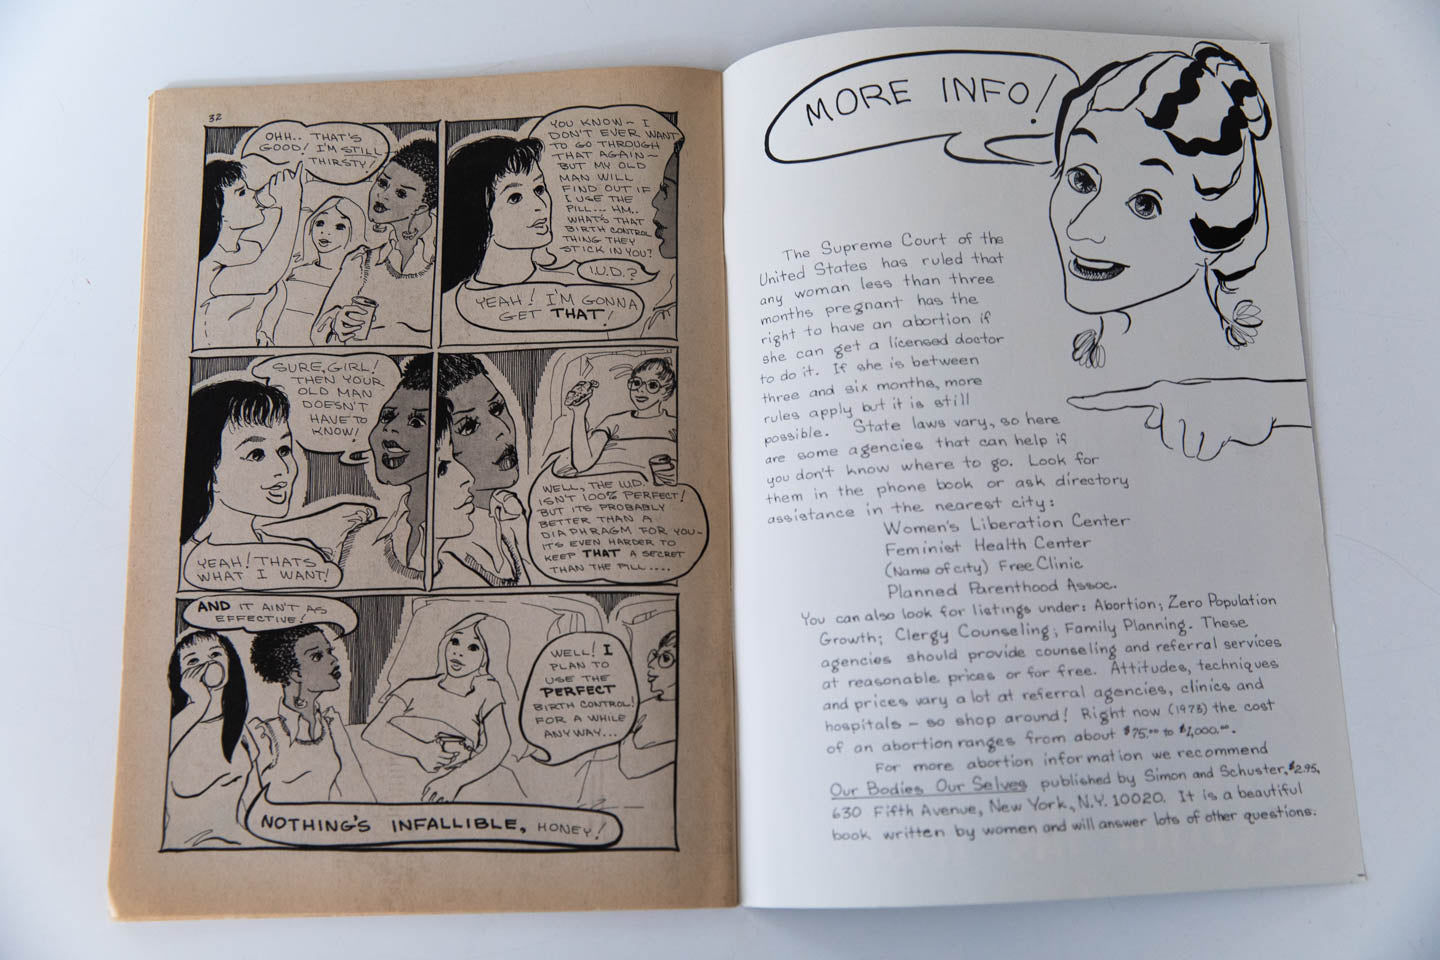 32
OHH.. THAT'S
GOOD! I'M STILL
THIRSTY!
YOU KNOW - I
DON'T EVER WANT
TO GO THROUGH
THAT AGAIN -
BUT MY OLD
MAN WILL
FIND OUT IF
I USE THE
PILL... HM..
WHAT'S THAT
BIRTH CONTROL
THING THEY
STICK IN YOU?
I.U.D.?
YEAH! I'M GONNA
GET THAT!
SURE, GIRL!
THEN YOUR
OLD MAN
DOESN'T
HAVE TO
KNOW!
YEAH! THATS
WHAT I WANT!
WELL, THE I.U.D.
ISN'T 100% PERFECT!
BUT ITS PROBABLY
BETTER THAN A
DIAPHRAGM FOR YOU-
IT'S EVEN HARDER TO
KEEP THAT A SECRET
THAN THE PILL....
AND IT AIN'T AS
EFFECTIVE!
WELL! I
PLAN TO
USE THE
PERFECT
BIRTH CONTROL!
FOR A WHILE
ANY WAY...
NOTHING'S INFALLIBLE, HONEY!
MORE INFO!
The Supreme Court of the
United States has ruled that
any woman less than three
months pregnant has the
right to have an abortion if
she can get a licensed doctor
to do it. If she is between
three and six months, more
rules apply but it is still
possible. State laws vary, so here
are some agencies that can help if
you don't know where to go. Look for
them in the phone book or ask directory
assistance in the nearest city:
Women's Liberation Center
Feminist Health Center
(Name of city) Free Clinic
Planned Parenthood Assoc.
You can also look for listings under: Abortion; Zero Population
Growth; Clergy Counseling; Family Planning. These
agencies should provide counseling and referral services
at reasonable prices or for free. Attitudes, techniques
and prices vary a lot at referral agencies, clinics and
hospitals - so shop around! Right now (1973) the cost
of an abortion ranges from about $75.00 to $1,000.00.
For more abortion information we recommend
Our Bodies Our Selves published by Simon and Schuster, $2.95,
630 Fifth Avenue, New York, N.Y. 10020. It is a beautiful
book written by women and will answer lots of other questions.